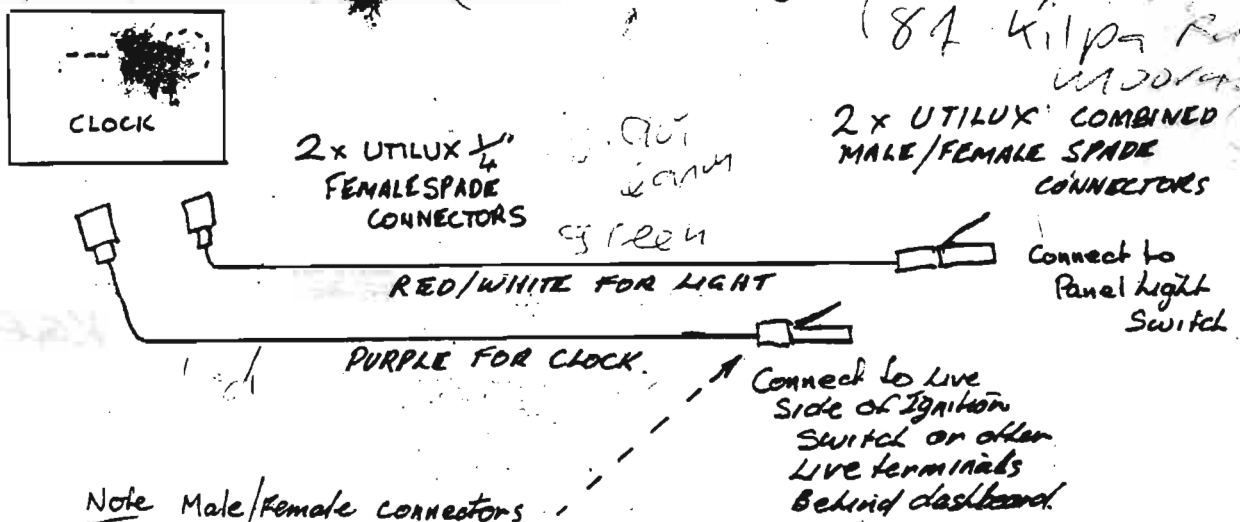 (81 Kilpa
CLOCK
2 x UTILUX 1/4"
FEMALE SPADE
CONNECTORS
2 x UTILUX COMBINED
MALE/FEMALE SPADE
CONNECTORS
green
RED/WHITE FOR LIGHT
Connect to
Panel Light
Switch
PURPLE FOR CLOCK.
Connect to Live
Side of Ignition
Switch or other
Live terminals
Behind dashboard.
Note Male/Female connectors